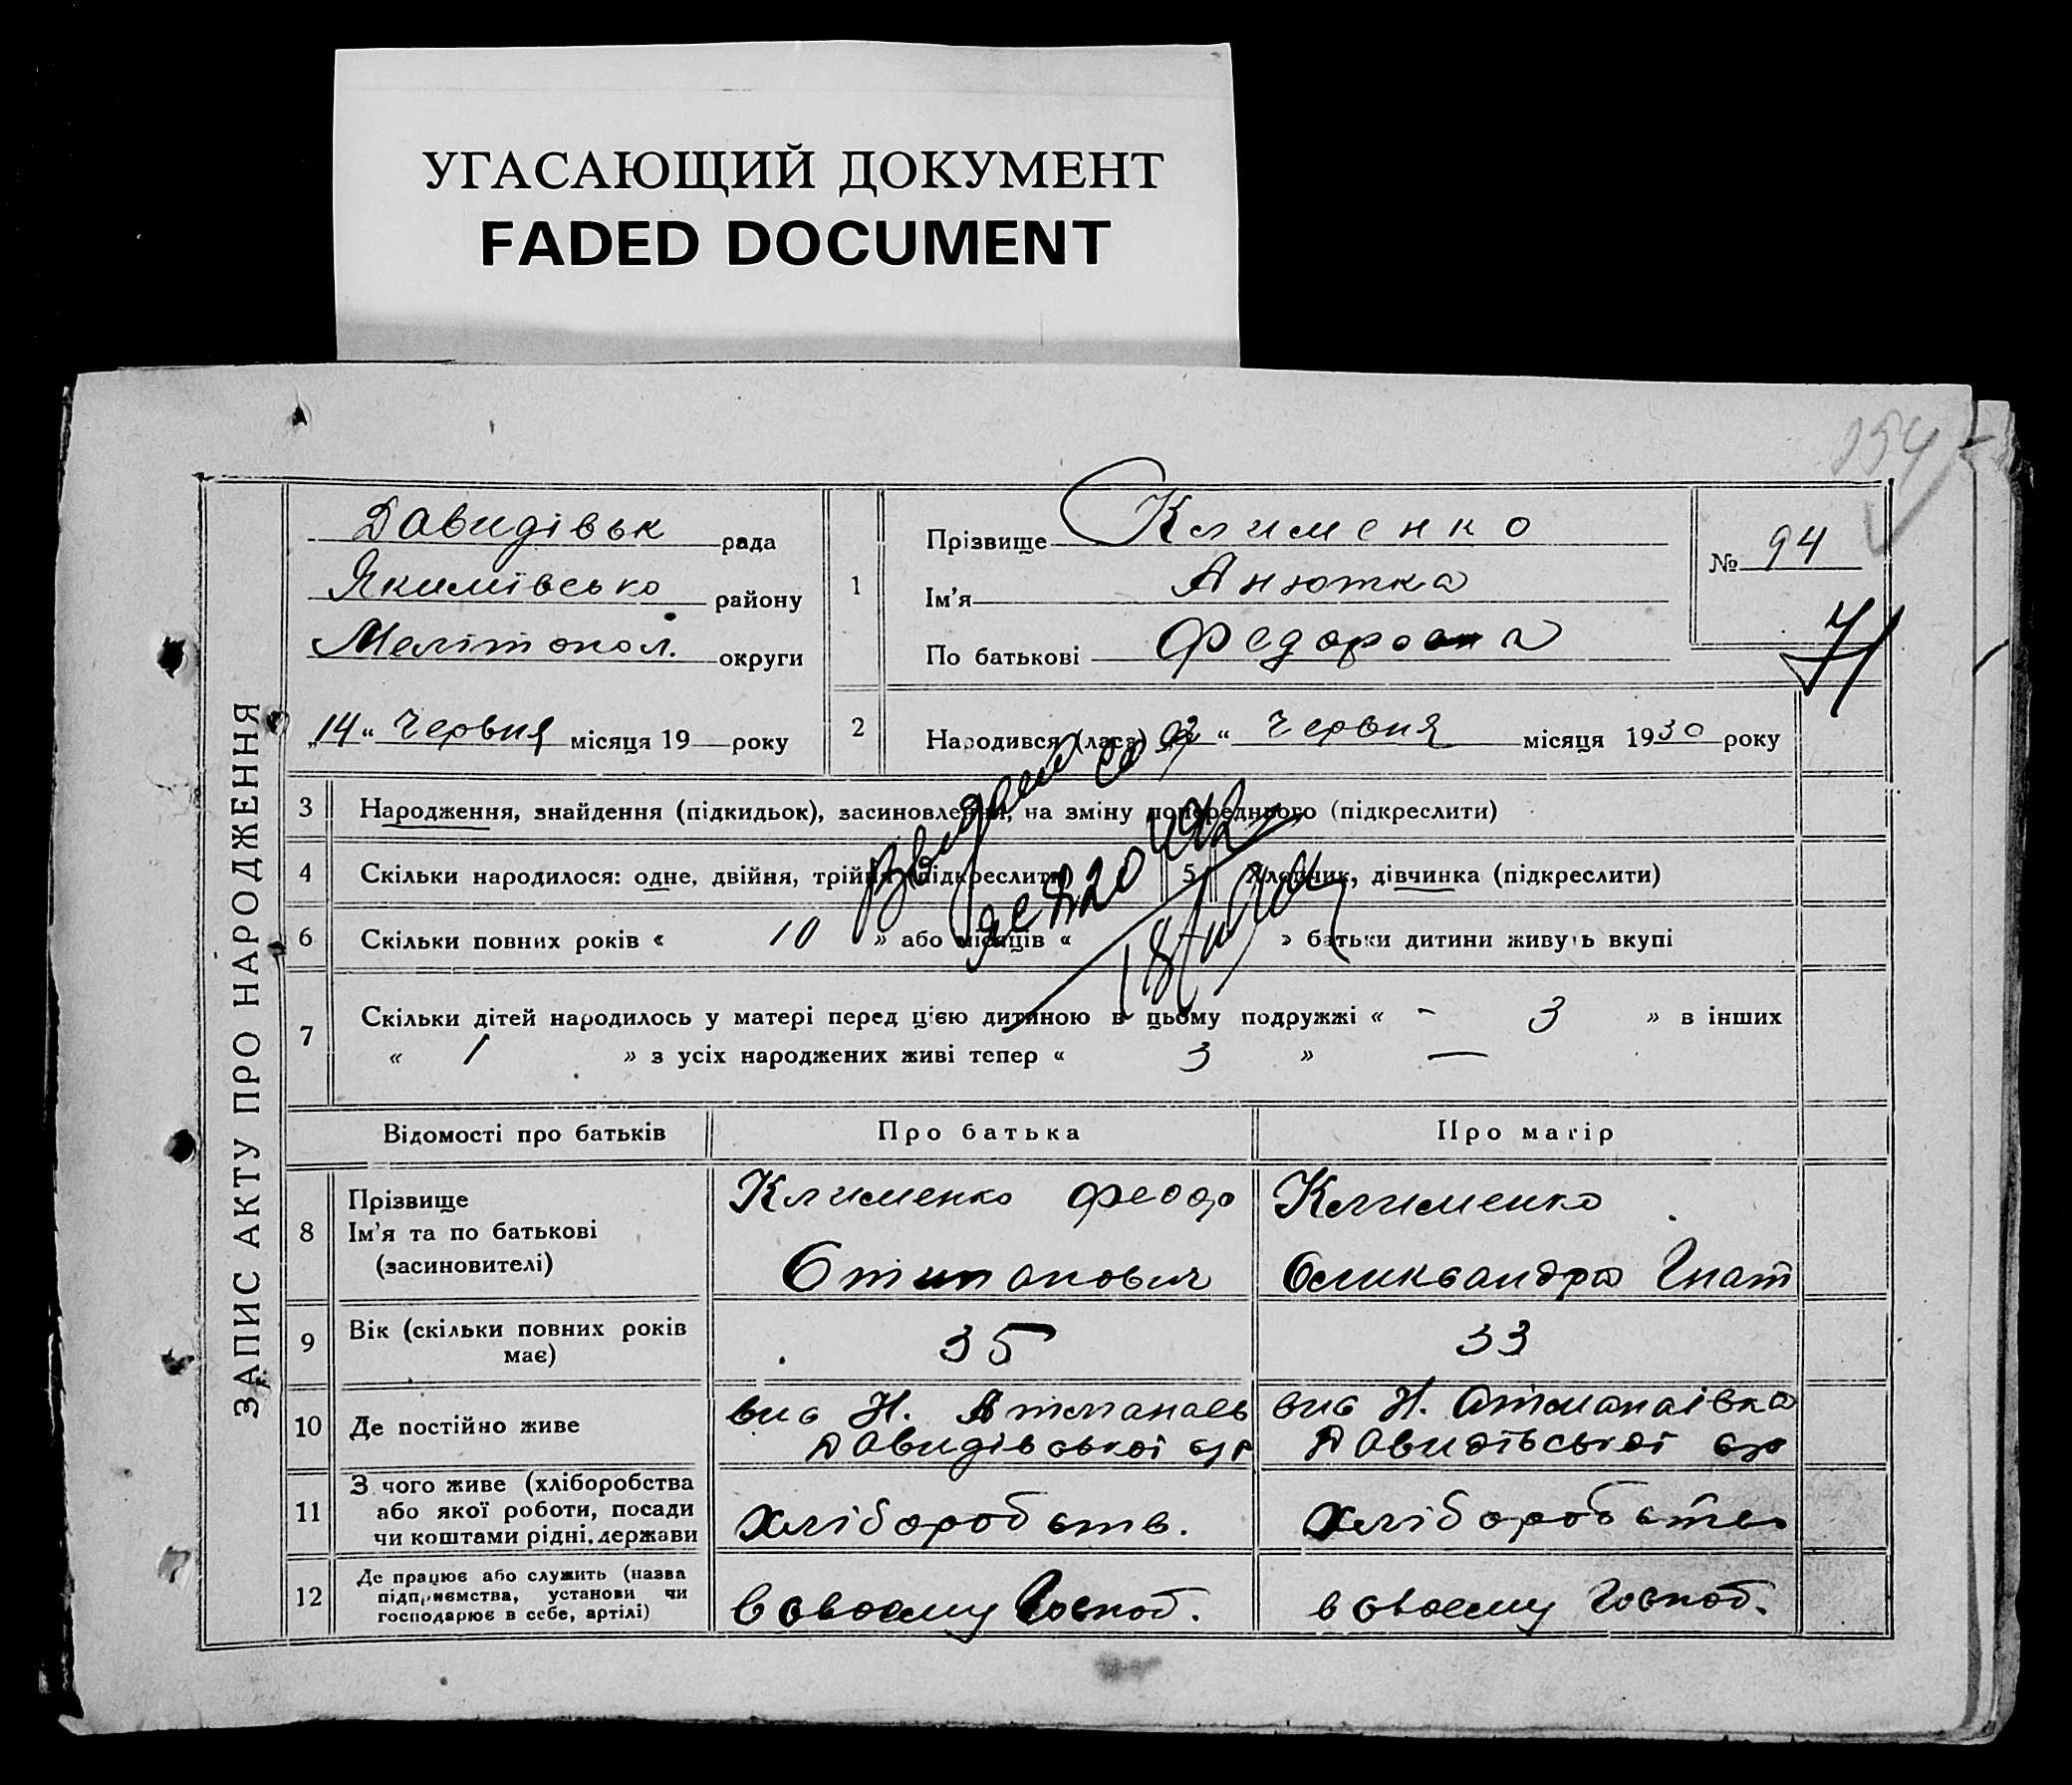 УГАСАЮЩИЙ ДОКУМЕНТ
FADED DOCUMENT
ЗАПИС АКТУ ПРО НАРОДЖЕННЯ
Давидівськ рада
Якимівсько району
Мелітопол. округи
„14“ Червня місяця 19 року
1
Прізвище Клименко
Ім'я Анютка
По батькові Федоровна
№ 94
2
Народився (лася) „ “ Червня місяця 1930 року
3 Народження, знайдення (підкидьок), засиновлення, на зміну попереднього (підкреслити)
4 Скільки народилося: одне, двійня, трійня (підкреслити) 5 Хлопчик, дівчинка (підкреслити)
6 Скільки повних років « 10 » або місяців « » батьки дитини живуть вкупі
7 Скільки дітей народилось у матері перед цією дитиною в цьому подружжі « - 3 » в інших
« 1 » з усіх народжених живі тепер « 3 » —
Відомості про батьків Про батька Про матір
8 Прізвище
Ім'я та по батькові
(засиновителі)
Клименко Феодр
Стипанович
Клименко
Олександра Гнат
9 Вік (скільки повних років
має)
35
33
10 Де постійно живе
вис Н. Атманаев
Давидівської с/р
вис Н. Атманаівка
Давидівської с/р
11 З чого живе (хліборобства
або якої роботи, посади
чи коштами рідні, держави
хліборобств.
хліборобство
12 Де працює або служить (назва
підприємства, установи чи
господарює в себе, артілі)
в своєму Господ.
в своєму Господ.